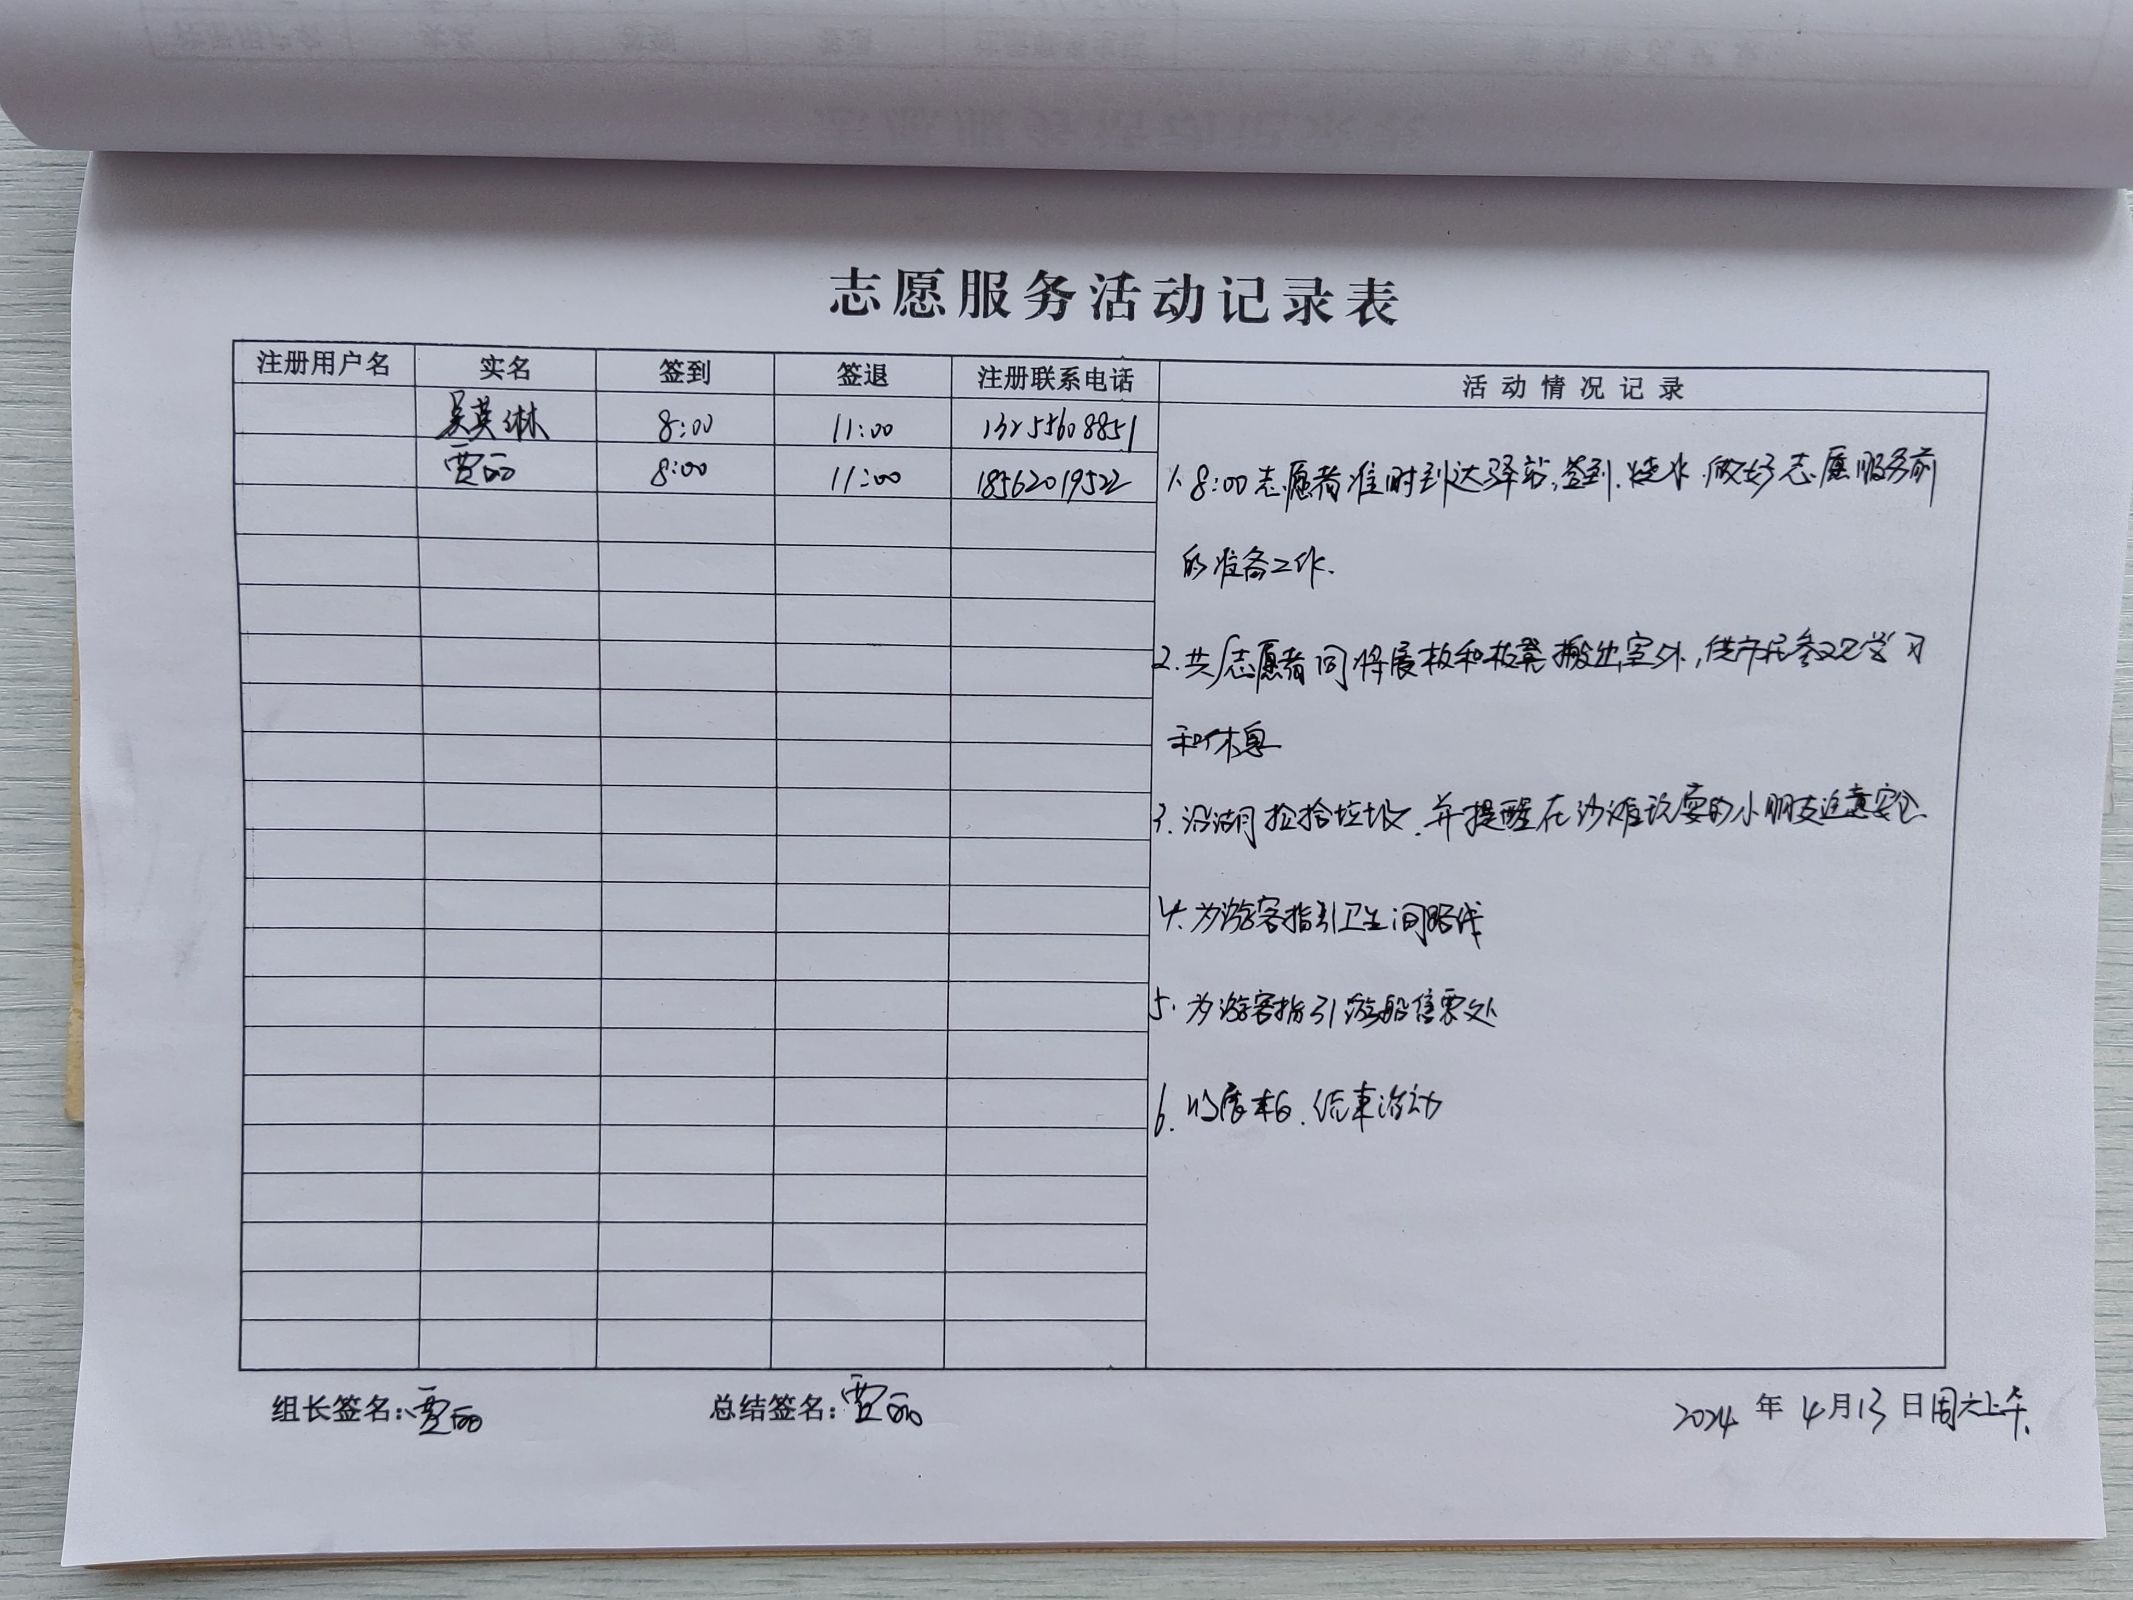 志愿服务活动记录表
注册用户名 实名 签到 签退 注册联系电话 活动情况记录
吴英琳 8:00 11:00 13255608851
贾丽 8:00 11:00 18562019522
1. 8:00志愿者准时到达驿站,签到.烧水.做好志愿服务前
的准备工作.
2.共产志愿者同将展板和板凳搬出室外,供市民参观学习
和休息
3.沿湖捡拾垃圾.并提醒在沙滩玩耍的小朋友注意安全.
4.为游客指引卫生间路线
5.为游客指引游船售票处
6.收展板.结束活动
组长签名:贾丽 总结签名:贾丽 2024年4月13日周六上午.